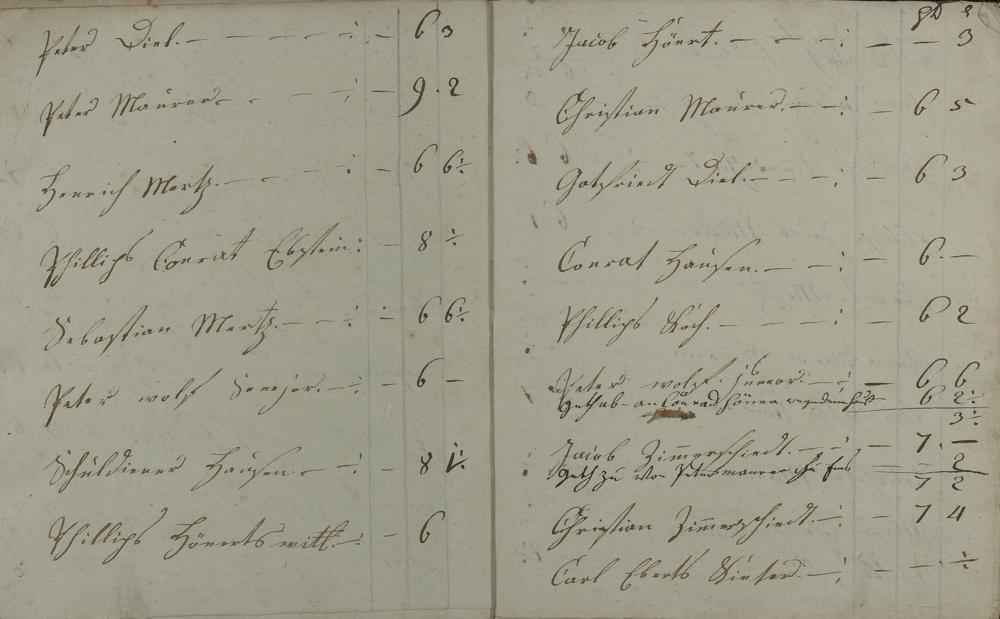 Peter Diel. — — — — ·/· — 6 3
Peter Maurer — — — ·/· — 9 . 2
Henrich Mertz. — — — ·/· — 6 6 ·/·
Phillips Conrat Ebstein : — 8 ·/·
Sebastian Mertz. — — ·/· — 6 6 ·/·
Peter wolf Seenjor. — ·/· — 6 —
Schuldiener Hausen. — — ·/· — 8 1 ·/·
Phillips Hönerts witt. — ·/· — 6
Jacob Hönert. — — — ·/· — — 3
Christian Maurer. — ·/· — 6 5
Gotfriedt Diel. — — — ·/· — 6 3
Conrat Hausen. — — ·/· — 6 . —
Phillips Koch. — — — ·/· — 6 2
Peter wolf. Junior. — ·/· — 6 6
Geth ab — an Conrad 6 2 ·/·
3 ·/·
Jacob Zimmerschiedt. — ·/· — 7 . —
Geth zu Von Peter maurer — 2
7 2
Christian Zimmerschiedt. — ·/· — 7 4
Carl Eberts Kinter. — ·/· — — · ·/·